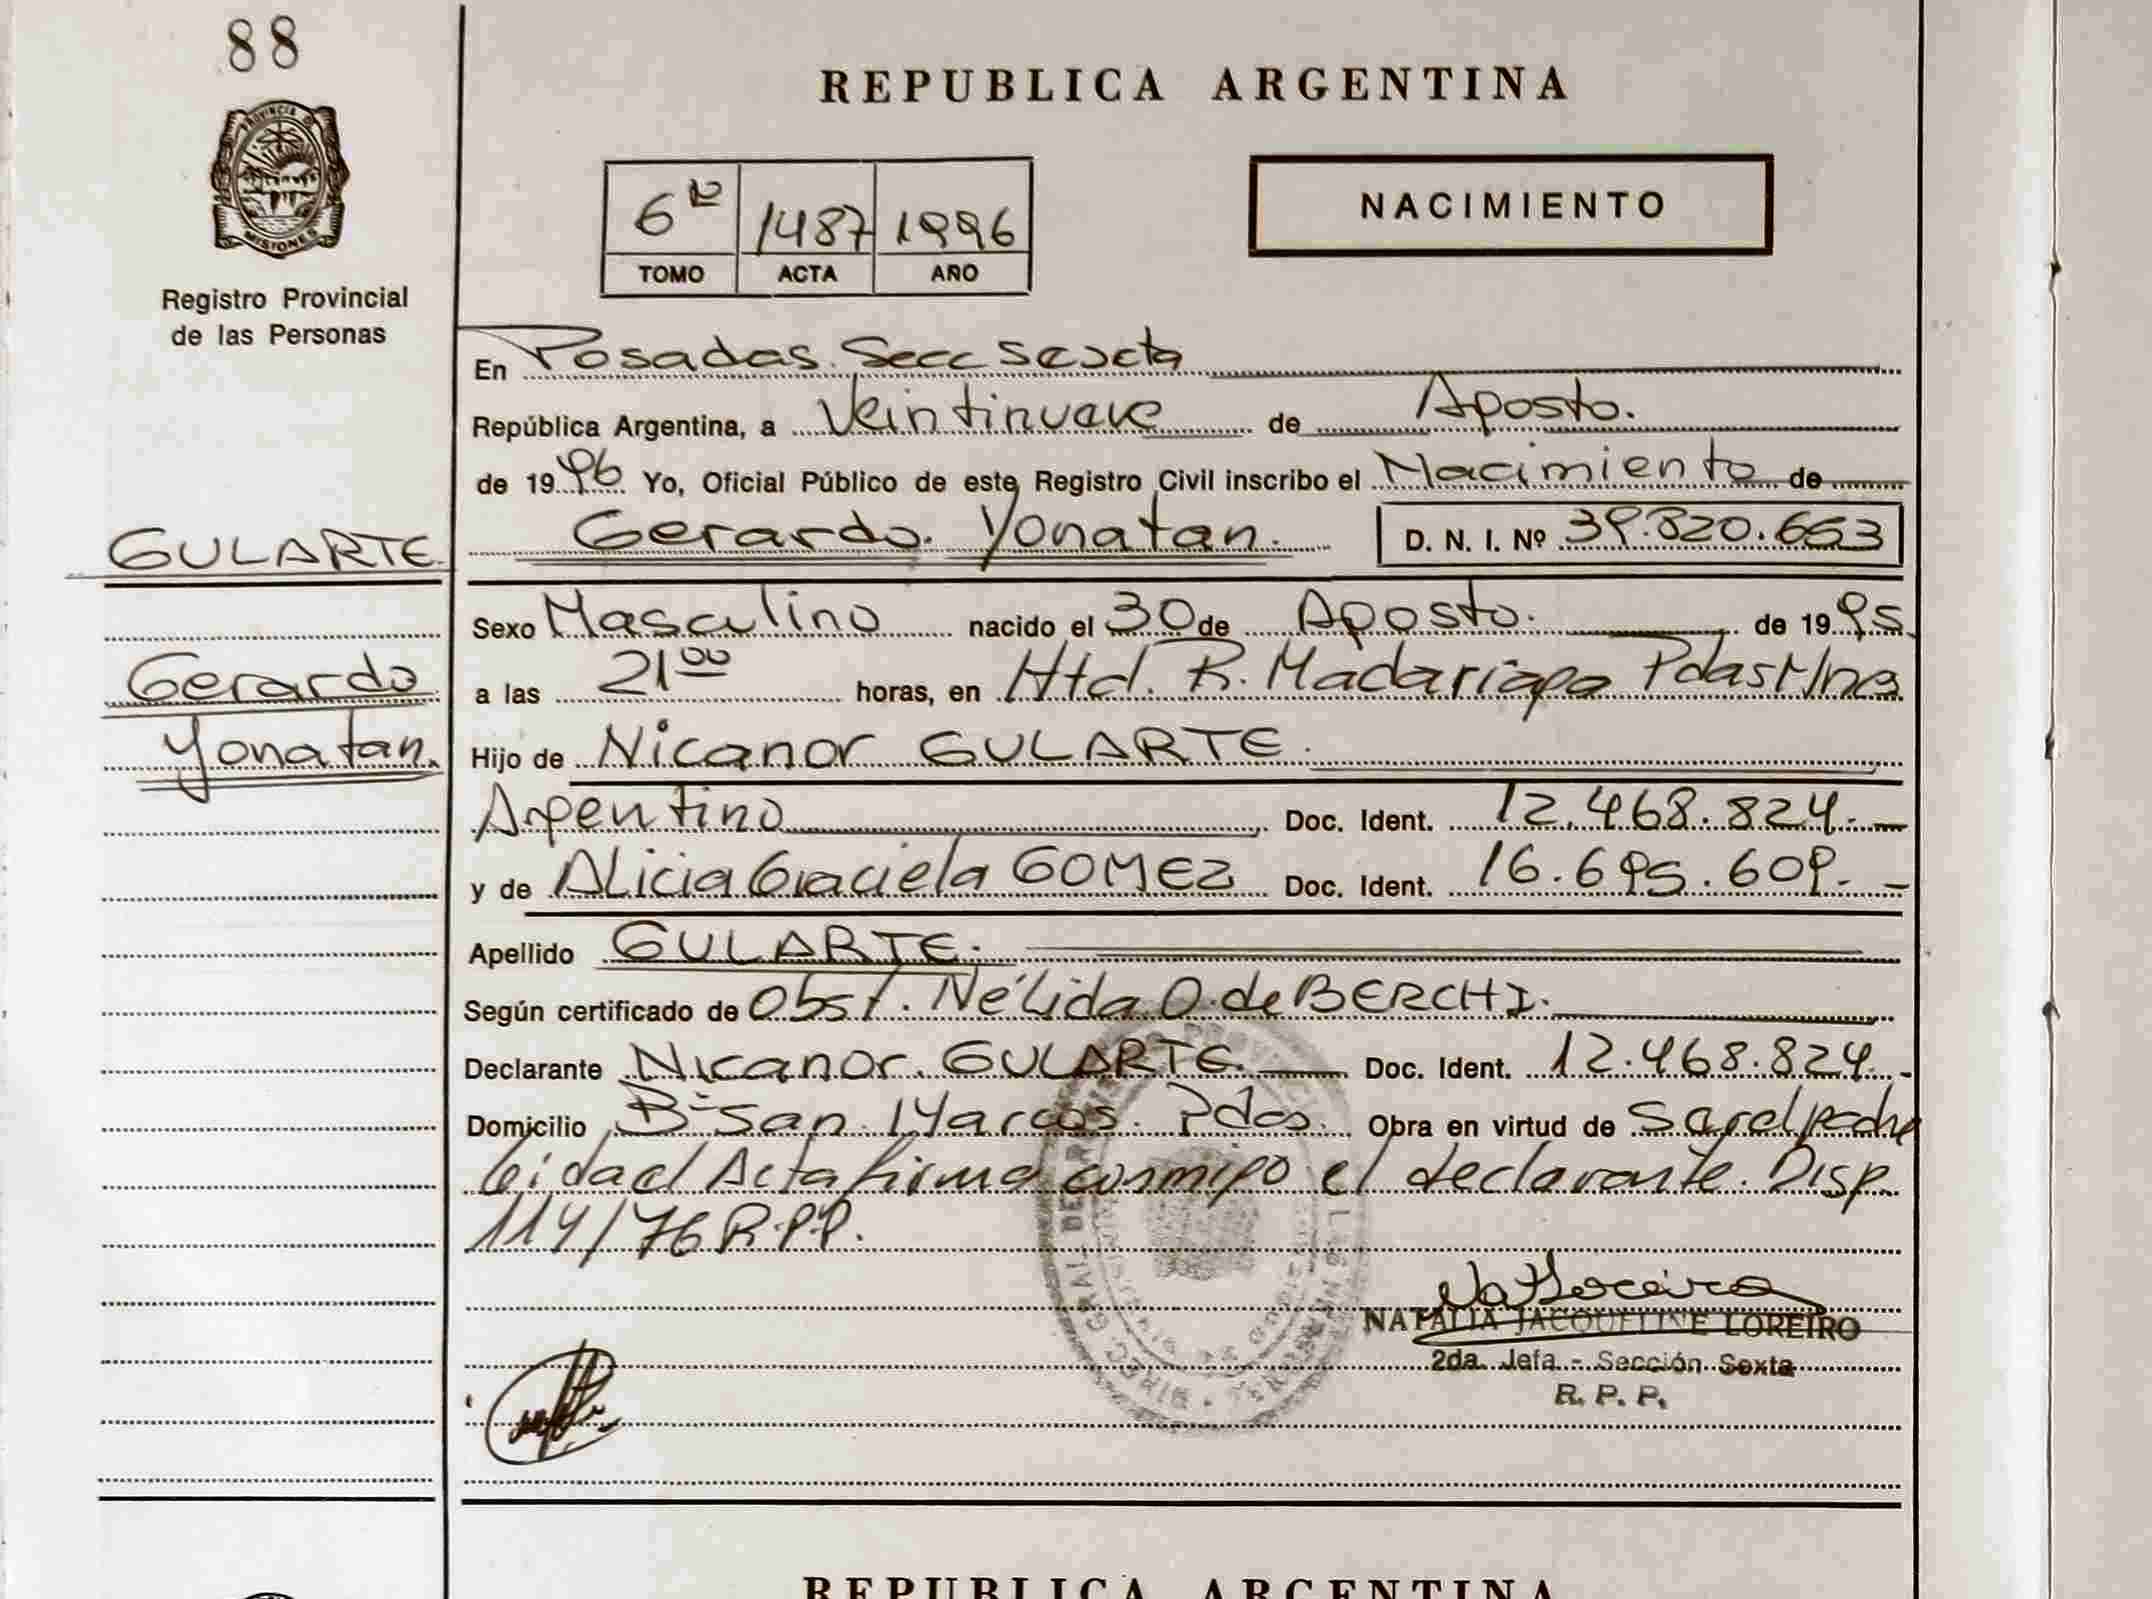 88
PROVINCIA D
MISIONES
Registro Provincial
de las Personas
REPUBLICA ARGENTINA
6to 1487 1996
TOMO ACTA AÑO
NACIMIENTO
En Posadas. Secc sexta
República Argentina, a Veintinueve de Agosto.
de 1996 Yo, Oficial Público de este Registro Civil inscribo el Nacimiento de
Gerardo. Yonatan. D. N. I. Nº 39.820.653
GULARTE
Gerardo
Yonatan.
Sexo Masculino nacido el 30 de Agosto. de 1995.
a las 21 00 horas, en Htal. R. Madariaga Pdas Mnes
Hijo de Nicanor GULARTE.
Argentino Doc. Ident. 12.468.824.-
y de Alicia Graciela GOMEZ Doc. Ident. 16.695.609.-
Apellido GULARTE.
Según certificado de Obst. Nélida O. de BERCHI.
Declarante Nicanor. GULARTE. Doc. Ident. 12.468.824.-
Domicilio Bº San Marcos. Pdas. Obra en virtud de
Acta firma conmigo el declarante. Disp.
114/76 R.P.P.
NATALIA JACQUELINE LOREIRO
2da. Jefa - Sección Sexta
R. P. P.
REPUBLICA ARGENTINA